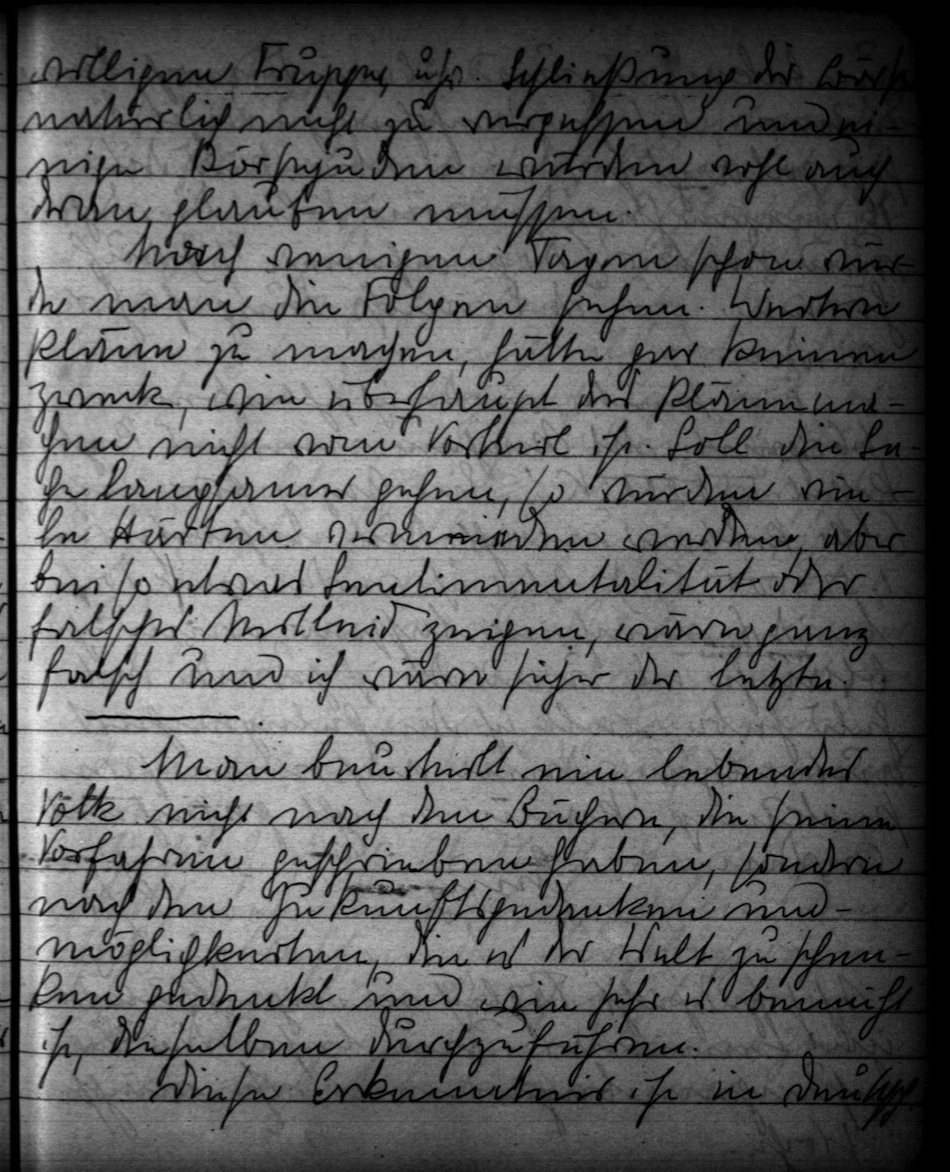 willigen Truppe, usw. Schließung der Börse
natürlich nicht zu vergessen und ei-
nige Börsejuden würden wohl auch
dran glauben müssen.
Nach wenigen Tagen schon wür-
de man die Folgen sehen. Weitere
Pläne zu machen, hätte gar keinen
Zweck, wie überhaupt das Pläne ma-
chen nicht von Vorteil ist. Soll die Sa-
che langsamer gehen, so würden vie-
le Härten vermieden werden, aber
bei so etwas Sentimentalität oder
falsches Mitleid zeigen, wäre ganz
falsch und ich wäre sicher der letzte.
Man beurteilt ein lebendes
Volk nicht nach den Büchern, die seine
Vorfahren geschrieben haben, sondern
nach den Zukunftsgedanken und -
möglichkeiten, die es der Welt zu schen-
ken gedenkt und wie sehr es bemüht
ist, dieselben durchzuführen.
Diese Erkenntnis ist in Deutsch